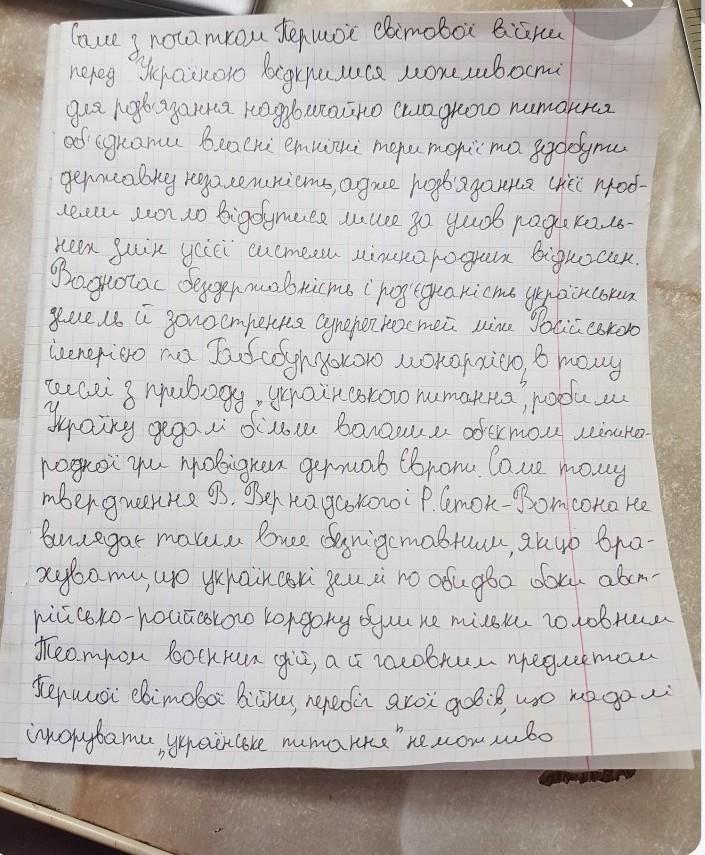 Саме з початком Першої світової війни
перед Україною відкрилися можливості
для розв'язання надзвичайно складного питання
об'єднати власні етнічні території та здобути
державну незалежність, адже розв'язання цієї проб-
леми могло відбутися лише за умов радикаль-
них змін усієї системи міжнародних відносин.
Водночас бездержавність і роз'єднаність українських
земель й загострення суперечностей між Російською
імперією та Габсбурзькою монархією, в тому
числі з приводу „українського питання", робили
Україну дедалі більш вагомим об'єктом міжна-
родної гри провідних держав Європи. Саме тому
твердження В. Вернадського і Р. Сетон-Вотсона не
виглядає таким вже безпідставним, якщо вра-
хувати, що українські землі по обидва боки авст-
рійсько-російського кордону були не тільки головним
театром воєнних дій, а й головним предметом
Першої світової війни, перебіг якої довів, що надалі
ігнорувати „українське питання" неможливо